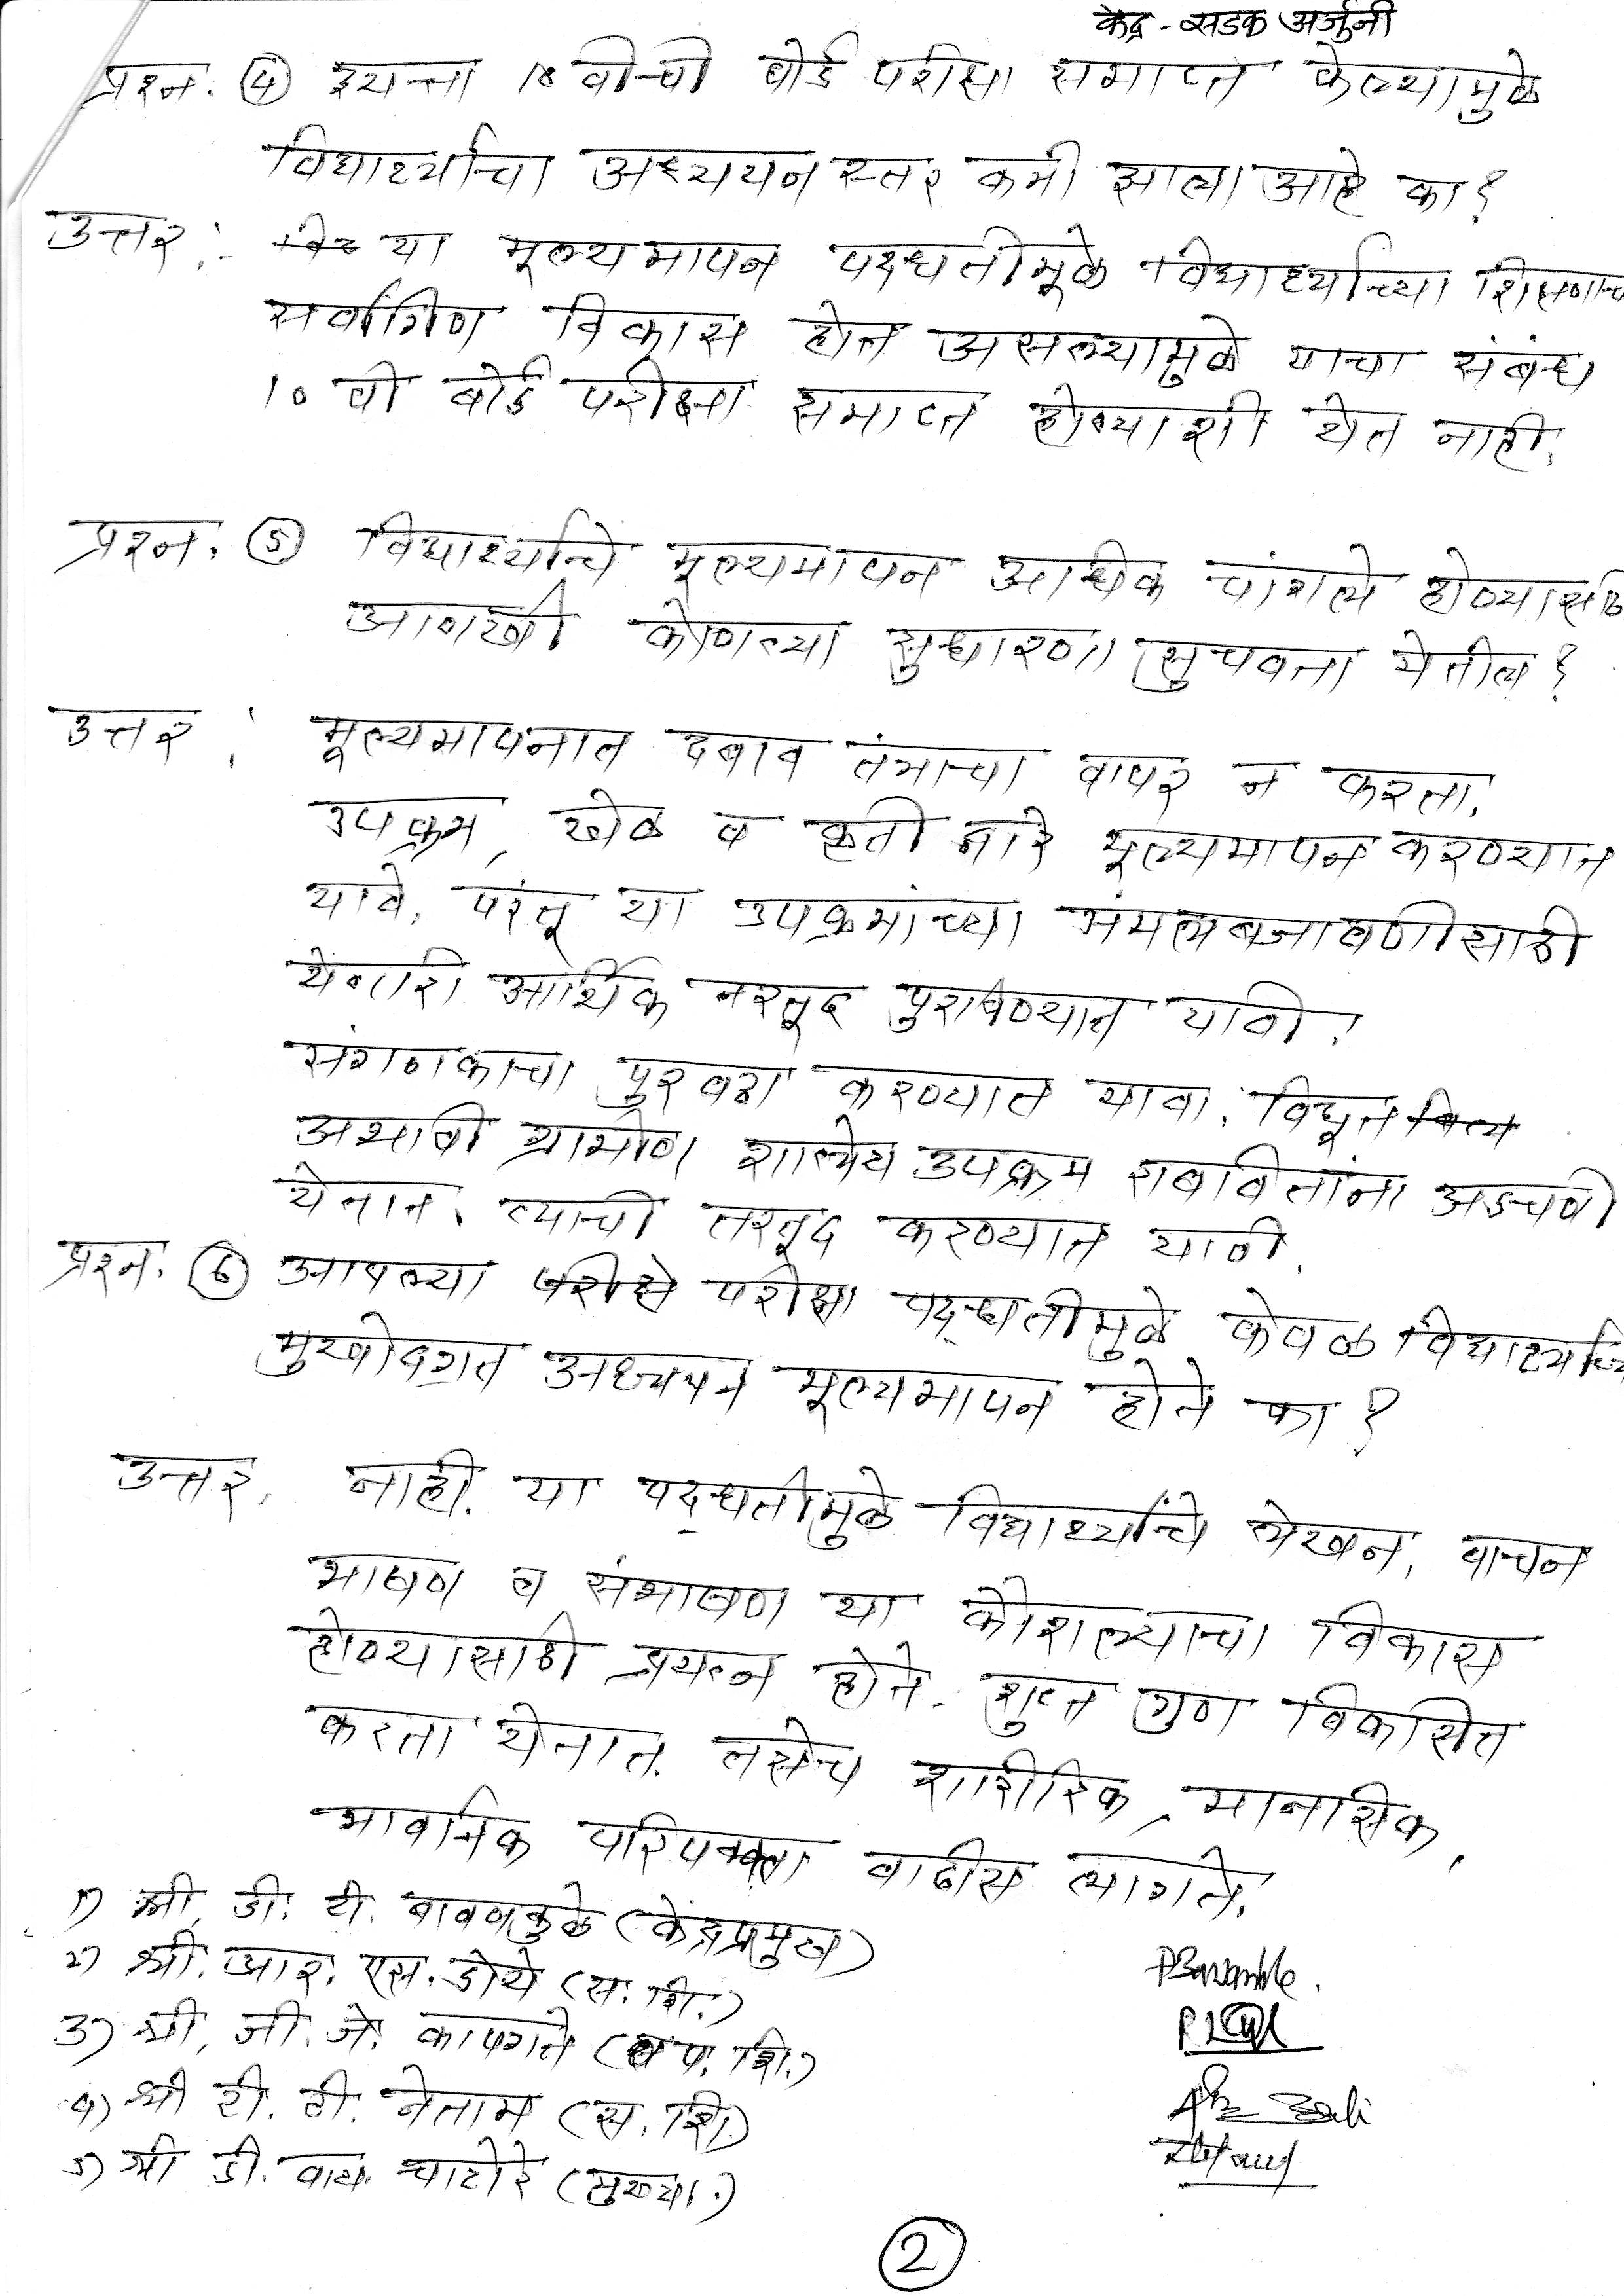 केंद्र - सडक अर्जुनी
प्रश्न. ④ इयत्ता 10 वीची बोर्ड परीक्षा समाप्त केल्यामुळे
विद्यार्थ्यांचा अध्ययन स्तर कमी झाला आहे का?
उत्तर :- या मूल्यमापन पद्धतीमूळे विद्यार्थ्यांच्या शिक्षणाच
सर्वांगिण विकास होत असल्यामुळे याचा संबंध
10 वी बोर्ड परीक्षा समाप्त होण्याशी येत नाही.
प्रश्न. ⑤ विद्यार्थ्यांचे मूल्यमापन अधिक चांगले होण्यासाठी
आणखी कोणत्या सुधारणा सुचवता येतील?
उत्तर : मूल्यमापनात दबाव तंत्राचा वापर न करता,
उपक्रम, खेळ व कृती द्वारे मूल्यमापन करण्यात
यावे. परंतू या उपक्रमांच्या अंमलबजावणीसाठी
येणारी आर्थिक तरतूद पुरविण्यात यावी.
संगणकाचा पुरवठा करण्यात यावा. विद्यूत
अभावी ग्रामीण शालेय उपक्रम राबवितांना अडचणी
येतात. त्याची तरतूद करण्यात यावी.
प्रश्न. ⑥ आपल्या परीक्षा पद्धतीमुळे केवळ विद्यार्थ्यांच्य
मुखोदगत अध्ययन मूल्यमापन होते का?
उत्तर. नाही. या पद्धतीमुळे विद्यार्थ्यांचे लेखन, वाचन
भाषण व संभाषण या कौशल्याचा विकास
होण्यासाठी प्रयत्न होते. सुप्त गुण विकासित
करता येतात. तसेच शारीरिक, मानसिक,
भावनिक परिपक्वता वाढीस लागते.
१) श्री. डी. टी. बावणकुळे (केंद्रप्रमुख)
२) श्री. आर. एस. डोये (स. शि.)
३) श्री. जी. जे. कापगते (प. शि.)
४) श्री टी. टी. नेताम (स. शि.)
५) श्री डी. वाय. चाटोरे (मुख्या.)
②